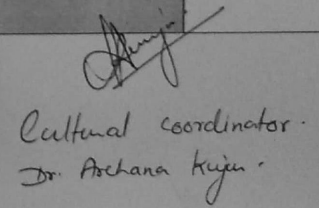 Cultural coordinator.
Dr. Archana Kujur.